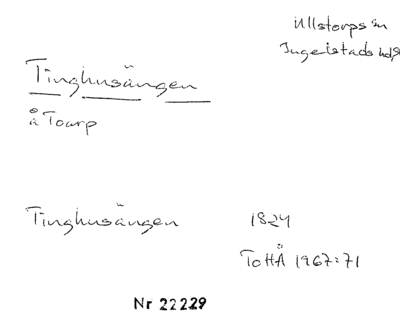 Ullstorps sn
Ingelstads hd
Tinghusängen
å Toarp
Tinghusängen 1824
ToHÅ 1967:71
Nr 22229